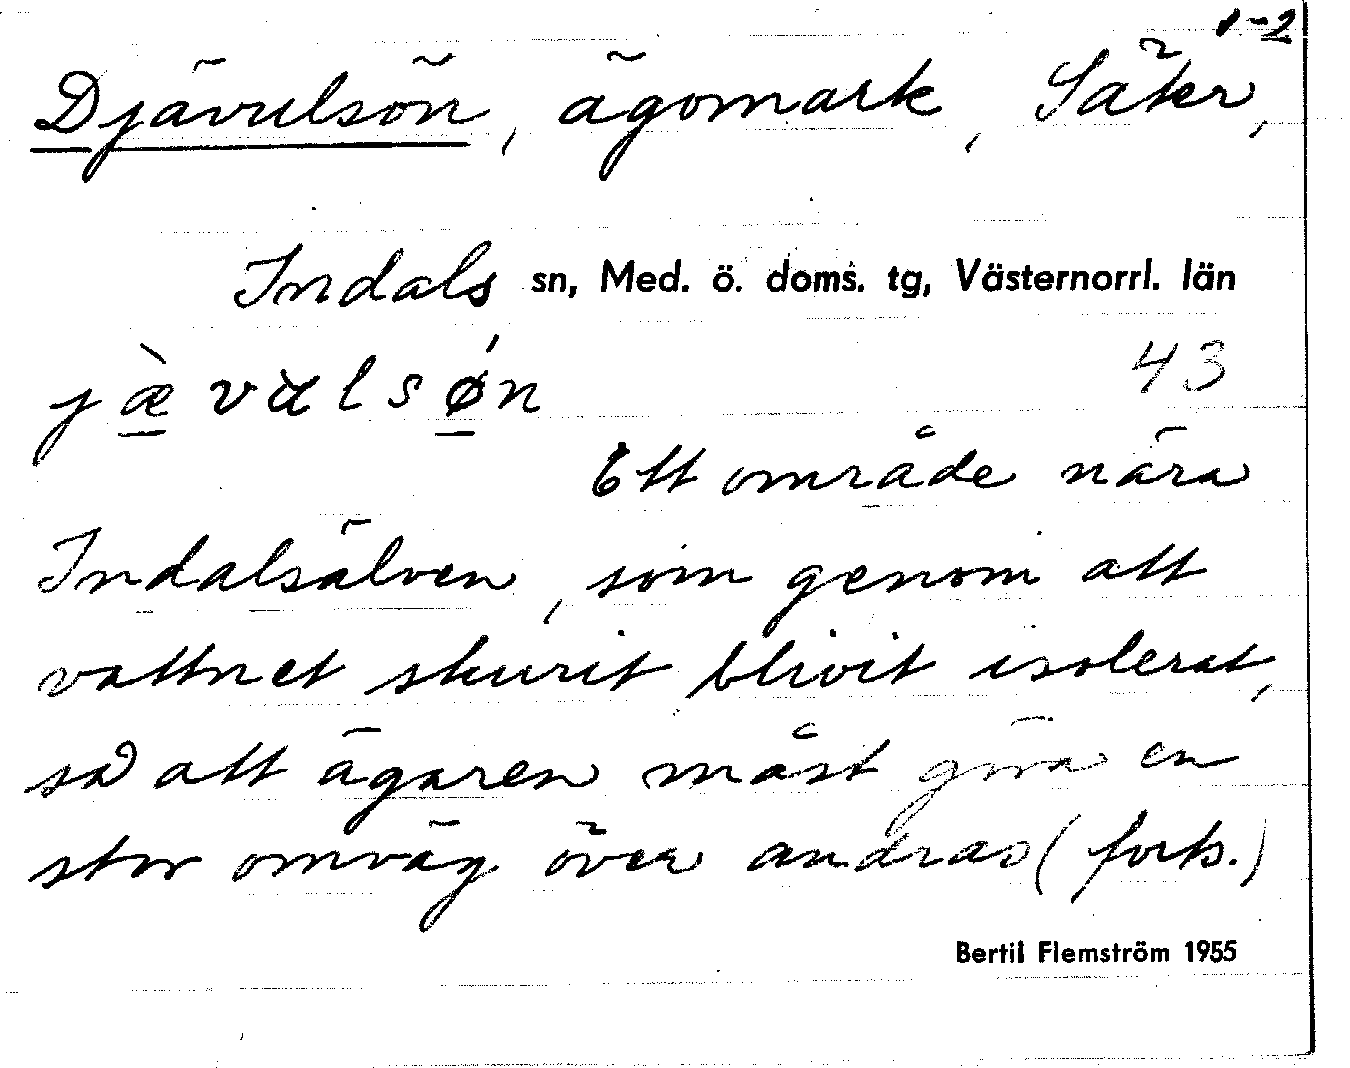 1-2
Djävulsön, ägomark, Säter,
Indals sn, Med. ö. doms. tg, Västernorrl. län
jæ̀vɑlsøń 43
Ett område nära
Indalsälven, som genom att
vattnet skurit blivit isolerat,
så att ägaren måst göra en
stor omväg över andras (forts.)
Bertil Flemström 1955